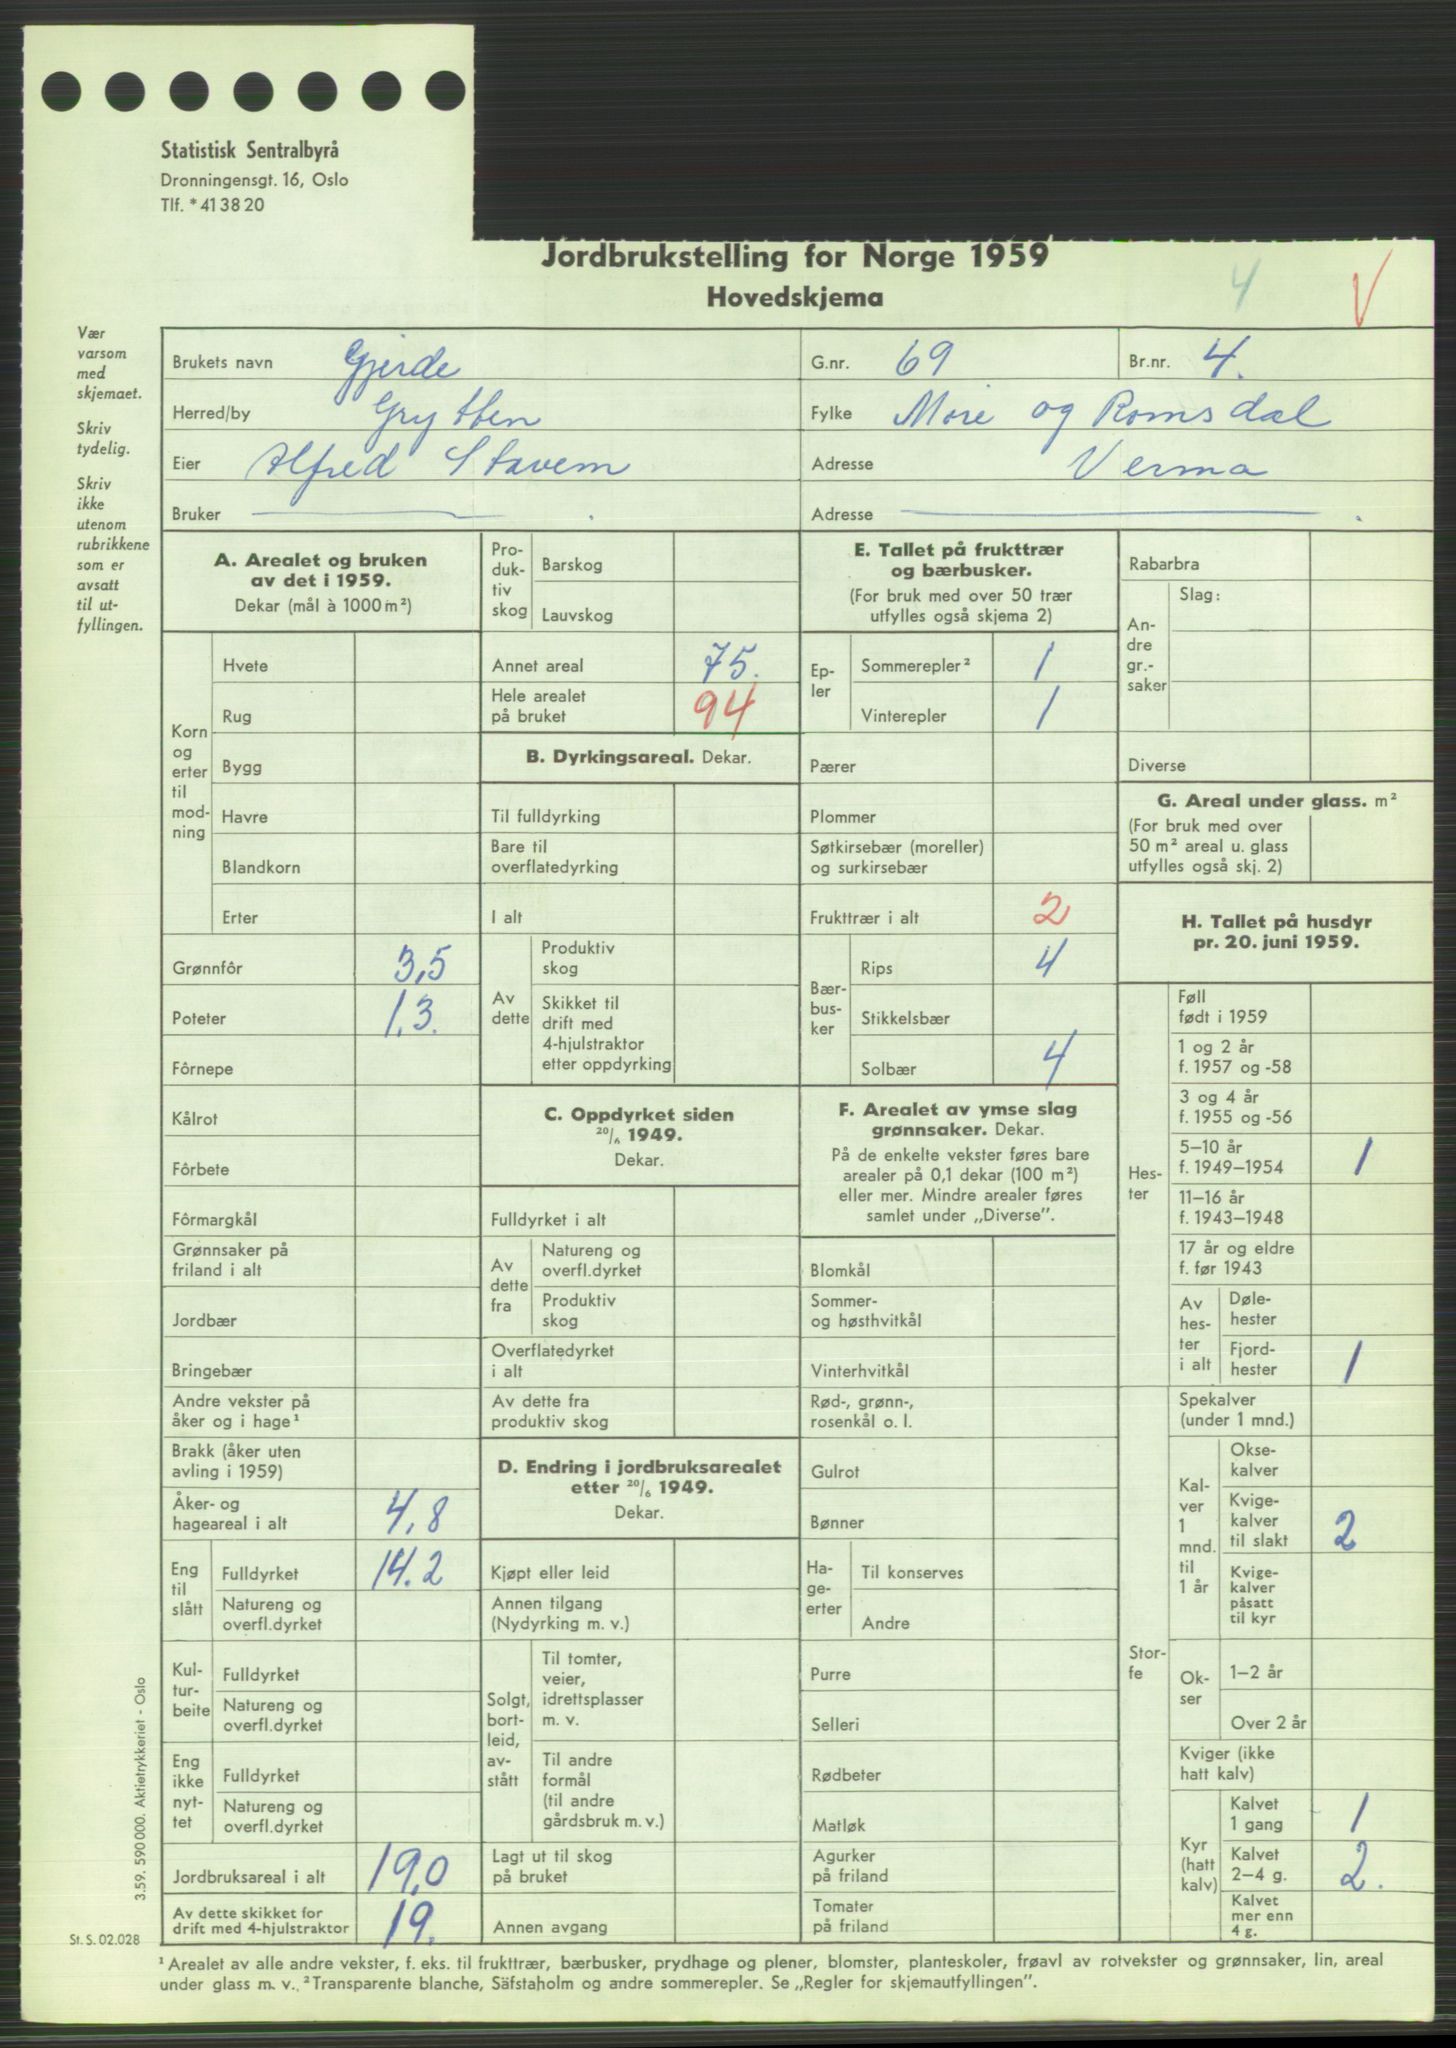 Statistisk Sentralbyrå
Dronningensgt. 16, Oslo
Tlf. * 41 38 20
Jordbrukstelling for Norge 1959
Hovedskjema
4
V
Vær
varsom
med
skjemaet.
Skriv
tydelig.
Skriv
ikke
utenom
rubrikkene
som er
avsatt
til ut-
fyllingen.
Brukets navn Gjerde
G.nr. 69 Br.nr. 4.
Herred/by Grytten
Fylke Møre og Romsdal
Eier Alfred Stavem
Adresse Verma
Bruker
Adresse
A. Arealet og bruken
av det i 1959.
Dekar (mål à 1000 m²)
Korn
og
erter
til
mod-
ning
Hvete
Rug
Bygg
Havre
Blandkorn
Erter
Grønnfôr 3,5
Poteter 1,3.
Fôrnepe
Kålrot
Fôrbete
Fôrmargkål
Grønnsaker på
friland i alt
Jordbær
Bringebær
Andre vekster på
åker og i hage¹
Brakk (åker uten
avling i 1959)
Åker- og
hageareal i alt 4,8
Eng
til
slått
Fulldyrket 14.2
Natureng og
overfl.dyrket
Kul-
tur-
beite
Fulldyrket
Natureng og
overfl.dyrket
Eng
ikke
nyt-
tet
Fulldyrket
Natureng og
overfl.dyrket
Jordbruksareal i alt 19,0
Av dette skikket for
drift med 4-hjulstraktor 19.
Pro-
duk-
tiv
skog
Barskog
Lauvskog
Annet areal 75.
Hele arealet
på bruket 94
B. Dyrkingsareal. Dekar.
Til fulldyrking
Bare til
overflatedyrking
I alt
Av
dette
Produktiv
skog
Skikket til
drift med
4-hjulstraktor
etter oppdyrking
C. Oppdyrket siden
20/6 1949.
Dekar.
Fulldyrket i alt
Av
dette
fra
Natureng og
overfl.dyrket
Produktiv
skog
Overflatedyrket
i alt
Av dette fra
produktiv skog
D. Endring i jordbruksarealet
etter 20/6 1949.
Dekar.
Kjøpt eller leid
Annen tilgang
(Nydyrking m. v.)
Solgt,
bort-
leid,
av-
stått
Til tomter,
veier,
idrettsplasser
m. v.
Til andre
formål
(til andre
gårdsbruk m. v.)
Lagt ut til skog
på bruket
Annen avgang
E. Tallet på frukttrær
og bærbusker.
(For bruk med over 50 trær
utfylles også skjema 2)
Ep-
ler
Sommerepler² 1
Vinterepler 1
Pærer
Plommer
Søtkirsebær (moreller)
og surkirsebær
Frukttrær i alt 2
Bær-
bus-
ker
Rips 4
Stikkelsbær
Solbær 4
F. Arealet av ymse slag
grønnsaker. Dekar.
På de enkelte vekster føres bare
arealer på 0,1 dekar (100 m²)
eller mer. Mindre arealer føres
samlet under „Diverse”.
Blomkål
Sommer-
og høsthvitkål
Vinterhvitkål
Rød-, grønn-,
rosenkål o. l.
Gulrot
Bønner
Ha-
ge-
erter
Til konserves
Andre
Purre
Selleri
Rødbeter
Matløk
Agurker
på friland
Tomater
på friland
Rabarbra
An-
dre
gr.-
saker
Slag:
Diverse
G. Areal under glass. m²
(For bruk med over
50 m² areal u. glass
utfylles også skj. 2)
H. Tallet på husdyr
pr. 20. juni 1959.
Hes-
ter
Føll
født i 1959
1 og 2 år
f. 1957 og -58
3 og 4 år
f. 1955 og -56
5–10 år
f. 1949–1954 1
11–16 år
f. 1943–1948
17 år og eldre
f. før 1943
Av
hes-
ter
i alt
Døle-
hester
Fjord-
hester 1
Stor-
fe
Spekalver
(under 1 mnd.)
Kal-
ver
1
mnd.
til
1 år
Okse-
kalver
Kvige-
kalver
til slakt 2
Kvige-
kalver
påsatt
til kyr
Ok-
ser
1–2 år
Over 2 år
Kviger (ikke
hatt kalv)
Kyr
(hatt
kalv)
Kalvet
1 gang 1
Kalvet
2–4 g. 2.
Kalvet
mer enn
4 g.
3.59. 590 000. Aktietrykkeriet - Oslo
St. S. 02.028
¹ Arealet av alle andre vekster, f. eks. til frukttrær, bærbusker, prydhage og plener, blomster, planteskoler, frøavl av rotvekster og grønnsaker, lin, areal
under glass m. v. ² Transparente blanche, Säfstaholm og andre sommerepler. Se „Regler for skjemautfyllingen”.